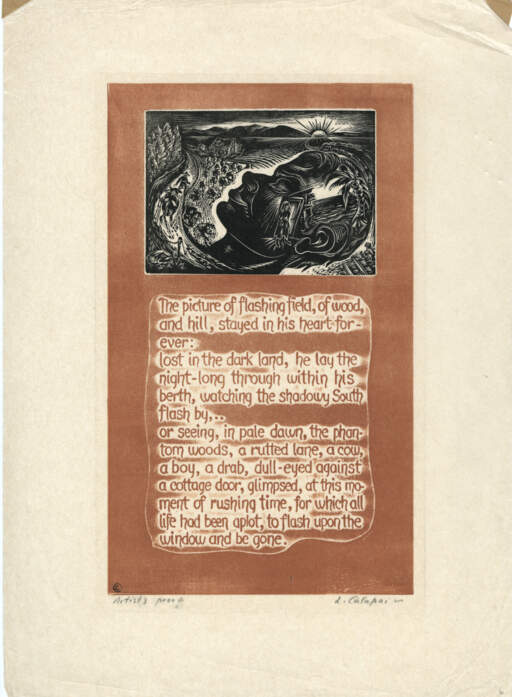 The picture of flashing field, of wood,
and hill, stayed in his heart for-
ever:
lost in the dark land, he lay the
night-long through within his
berth, watching the shadowy South
flash by,..
or seeing, in pale dawn, the phan-
tom woods, a rutted lane, a cow,
a boy, a drab, dull-eyed against
a cottage door, glimpsed, at this mo-
ment of rushing time, for which all
life had been aplot, to flash upon the
window and be gone.
Artist's proof L. Calapai